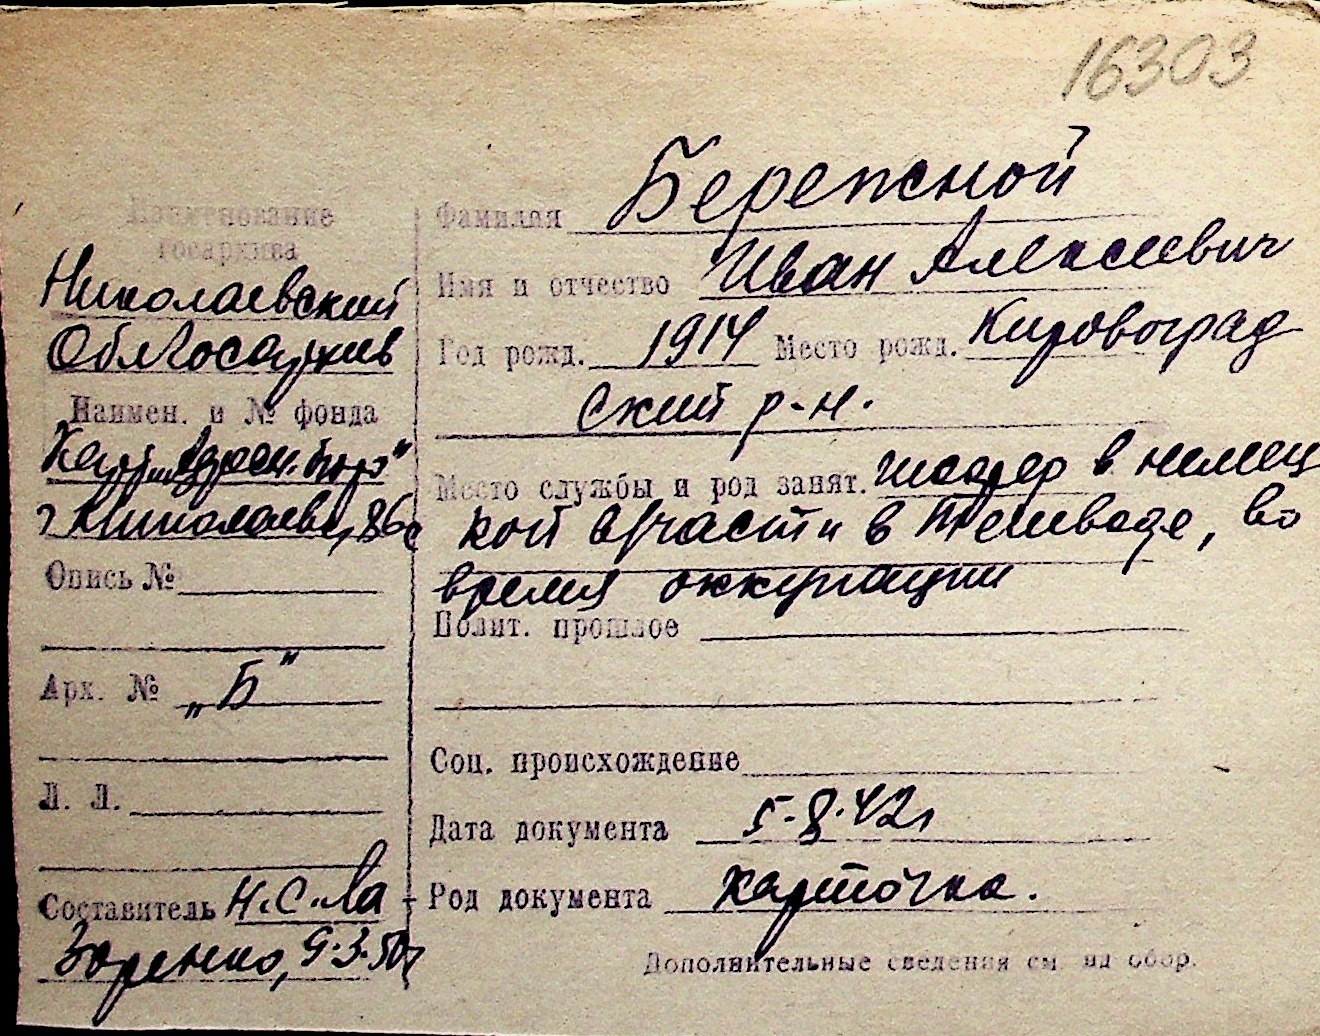 16303
Наименование
госархива
Николаевский
Облгосархив
Наимен. и № фонда
г. Николаева, 86с
Опись №
Арх. № „Б"
Л. Л.
Составитель Н.С. Ла-
заренко, 9.3.50г
Фамилия Бережной
Имя и отчество Иван Алексеевич
Год рожд. 1914 Место рожд. Кировоград
ский р-н.
Место службы и род занят. шофер в немец
кой в/части в, во
время оккупации
Полит. прошлое
Соц. происхождение
Дата документа 5.8.42г
Род документа карточка.
Дополнительные сведения см. на обор.